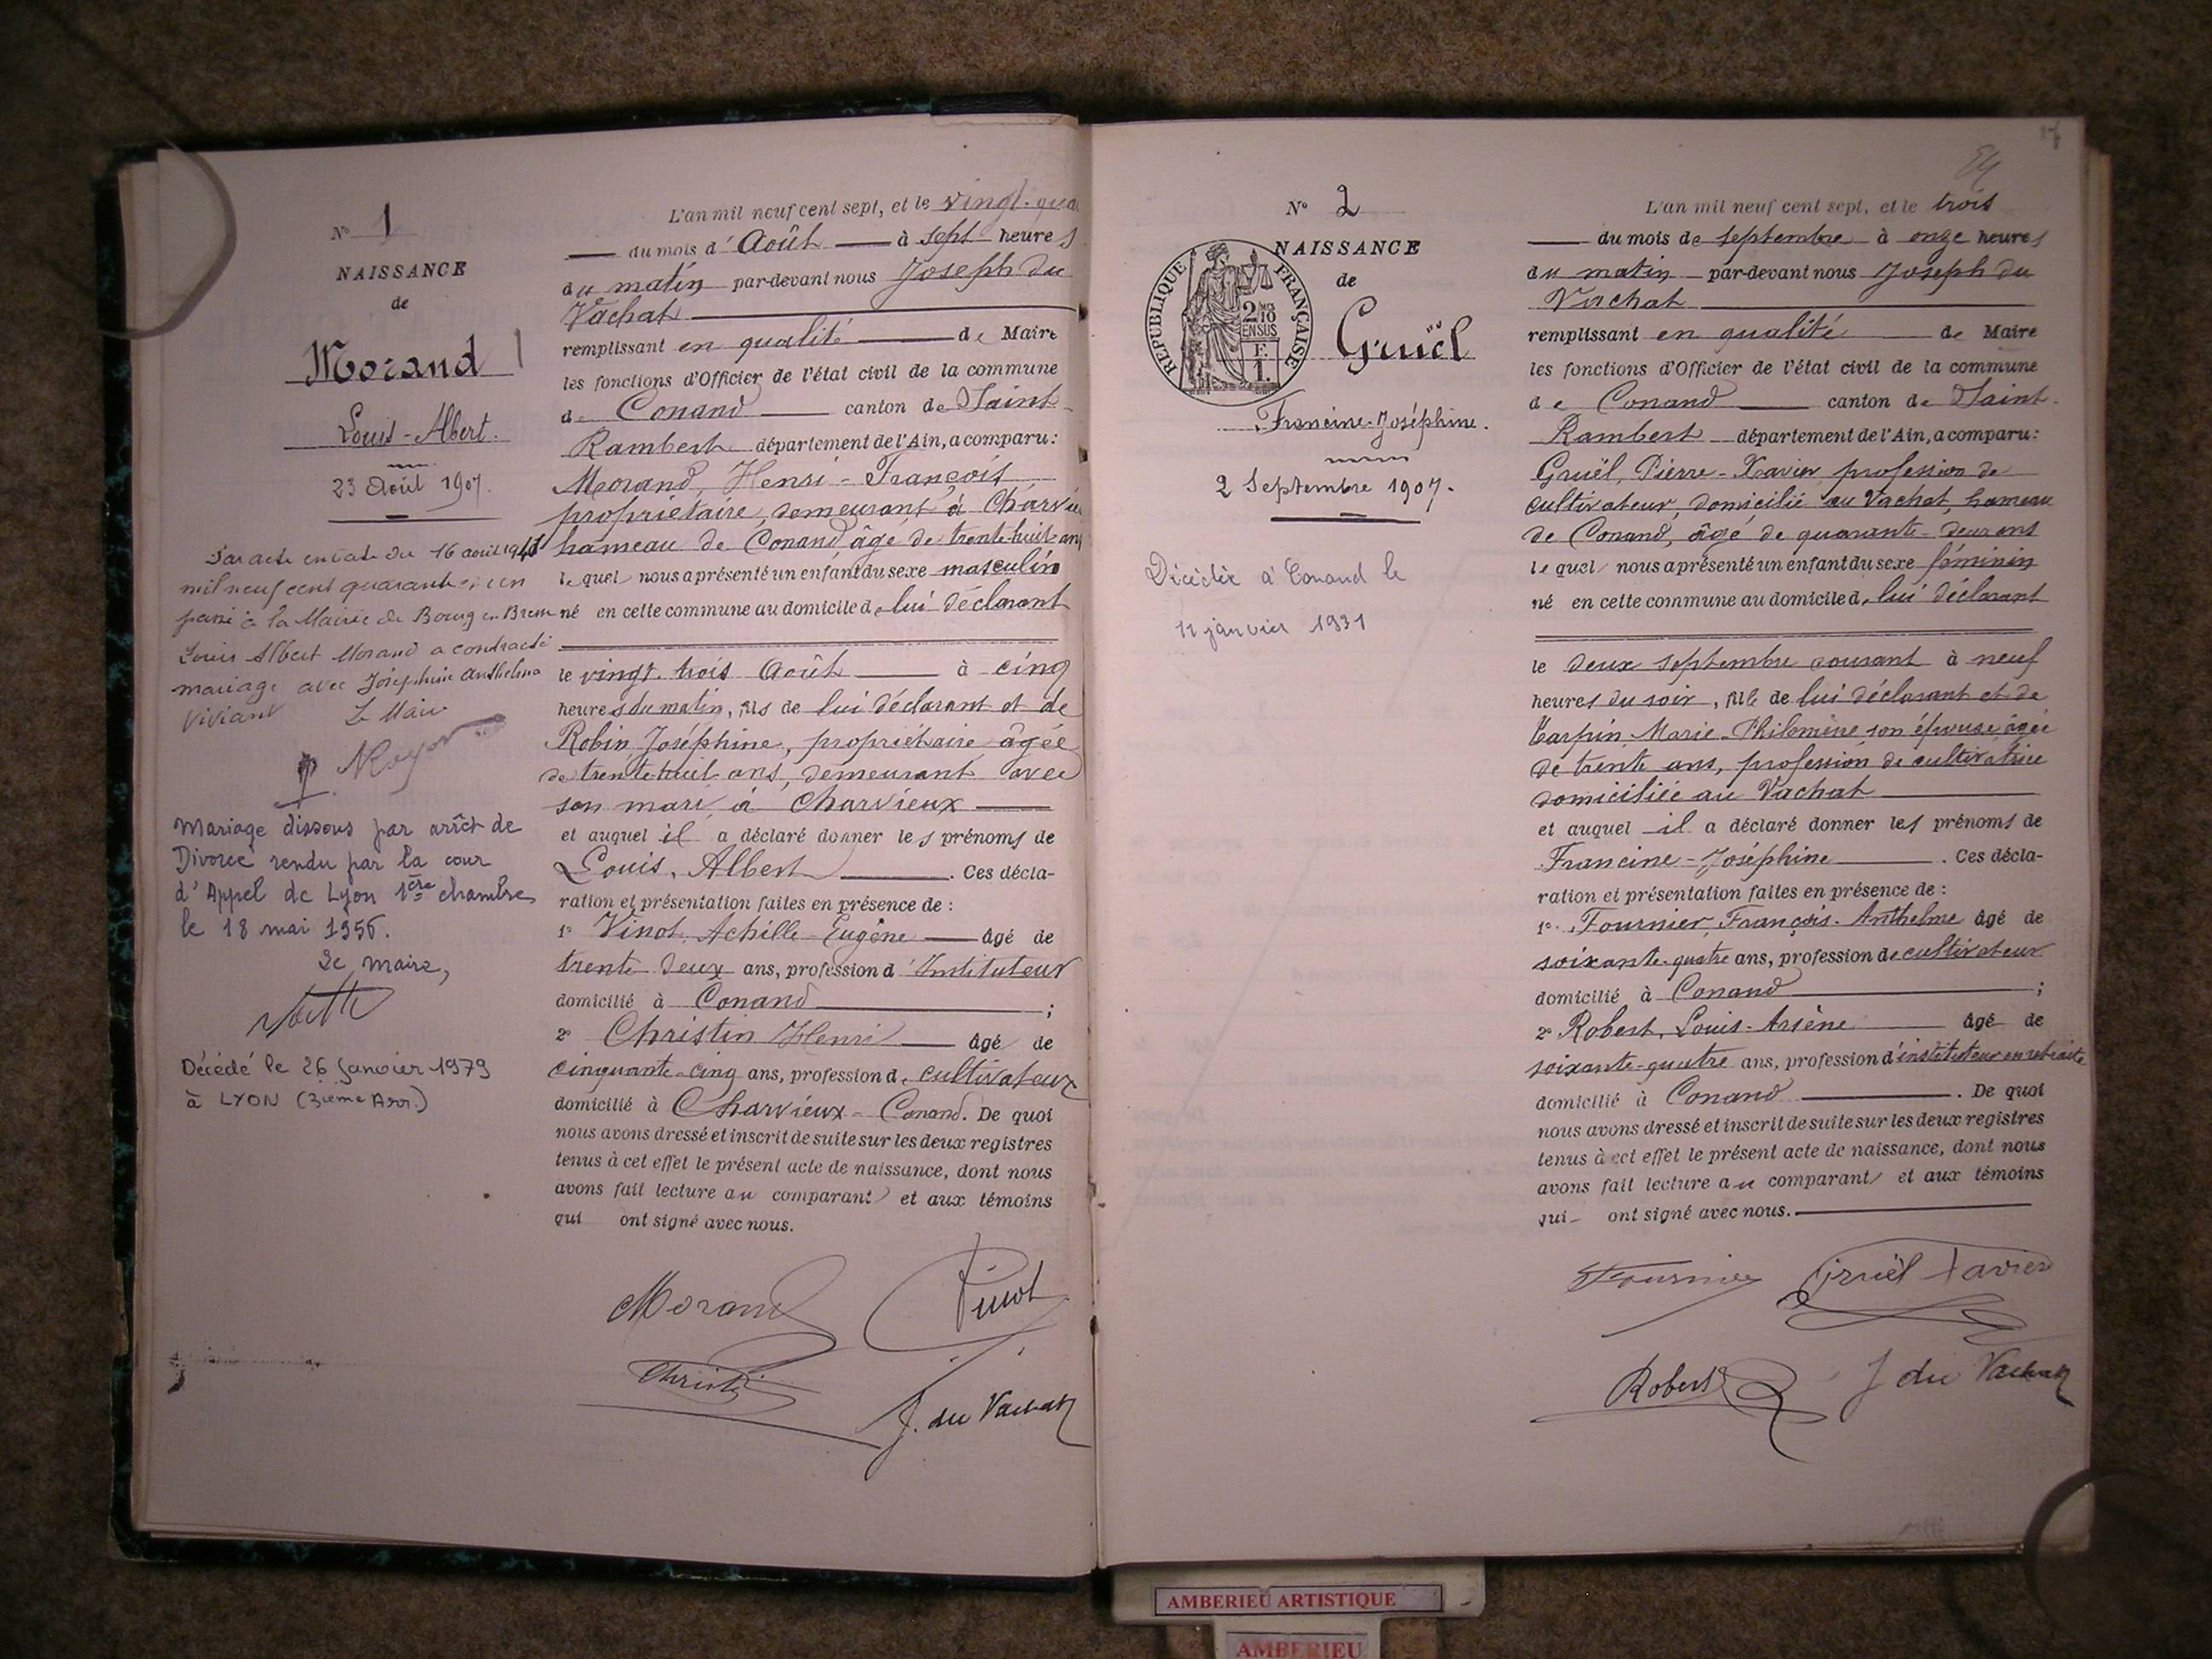 N° 1
NAISSANCE
de
Morand
Louis-Albert.
23 Août 1907.
Par acte en date du 16 août 1941
mil neuf cent quarante et un
passé à la Mairie de Bourg en Bresse
Louis Albert Morand a contracté
mariage avec Joséphine Anthelma
Viviant Le Maire
Mariage dissous par arrêt de
Divorce rendu par la cour
d'Appel de Lyon 1ère chambre
le 18 mai 1956.
Le maire,
Décédé le 26 Janvier 1979
à LYON (3ième Arr.)
L'an mil neuf cent sept, et le vingt-qua
du mois d'Août à sept heures
du matin par-devant nous Joseph du
Vachat
remplissant en qualité de Maire
les fonctions d'Officier de l'état civil de la commune
de Conand canton de Saint-
Rambert département de l'Ain, a comparu:
Morand, Henri-François
propriétaire, demeurant à Charvieux
hameau de Conand âgé de trente-huit ans
lequel nous a présenté un enfant du sexe masculin
né en cette commune au domicile de lui déclarant
le vingt-trois Août à cinq
heures du matin, fils de lui déclarant et de
Robin Joséphine, propriétaire âgée
de trente-huit ans, demeurant avec
son mari à Charvieux
et auquel il a déclaré donner les prénoms de
Louis, Albert. Ces décla-
ration et présentation faites en présence de :
1° Vinot, Achille-Eugène âgé de
trente-deux ans, profession d'Instituteur
domicilié à Conand ;
2° Christin Henri âgé de
cinquante-cinq ans, profession de cultivateur
domicilié à Charvieux-Conand. De quoi
nous avons dressé et inscrit de suite sur les deux registres
tenus à cet effet le présent acte de naissance, dont nous
avons fait lecture au comparant et aux témoins
qui ont signé avec nous.
Morand Vinot
Christin
J. du Vachat
N° 2
NAISSANCE
de
REPUBLIQUE FRANÇAISE
2/10 EN SUS
F. 1.
Gruël
Francine-Joséphine.
2 Septembre 1907.
Décédée à Conand le
11 janvier 1931
54
L'an mil neuf cent sept, et le trois
du mois de septembre à onze heures
du matin par-devant nous Joseph du
Vachat
remplissant en qualité de Maire
les fonctions d'Officier de l'état civil de la commune
de Conand canton de Saint-
Rambert département de l'Ain, a comparu:
Gruël, Pierre-Xavier profession de
cultivateur, domicilié au Vachat, hameau
de Conand, âgé de quarante-deux ans
lequel nous a présenté un enfant du sexe féminin
né en cette commune au domicile de lui déclarant
le deux septembre courant à neuf
heures du soir, fille de lui déclarant et de
Carpin, Marie-Philomène son épouse âgée
de trente ans, profession de cultivatrice
domiciliée au Vachat
et auquel il a déclaré donner les prénoms de
Francine-Joséphine. Ces décla-
ration et présentation faites en présence de :
1° Fournier, François-Anthelme âgé de
soixante-quatre ans, profession de cultivateur
domicilié à Conand ;
2° Robert, Louis-Arsène âgé de
soixante-quatre ans, profession d'instituteur en retraite
domicilié à Conand. De quoi
nous avons dressé et inscrit de suite sur les deux registres
tenus à cet effet le présent acte de naissance, dont nous
avons fait lecture au comparant et aux témoins
qui ont signé avec nous.
Fournier Gruël Xavier
Robert J du Vachat
AMBERIEU ARTISTIQUE
AMBERIEU